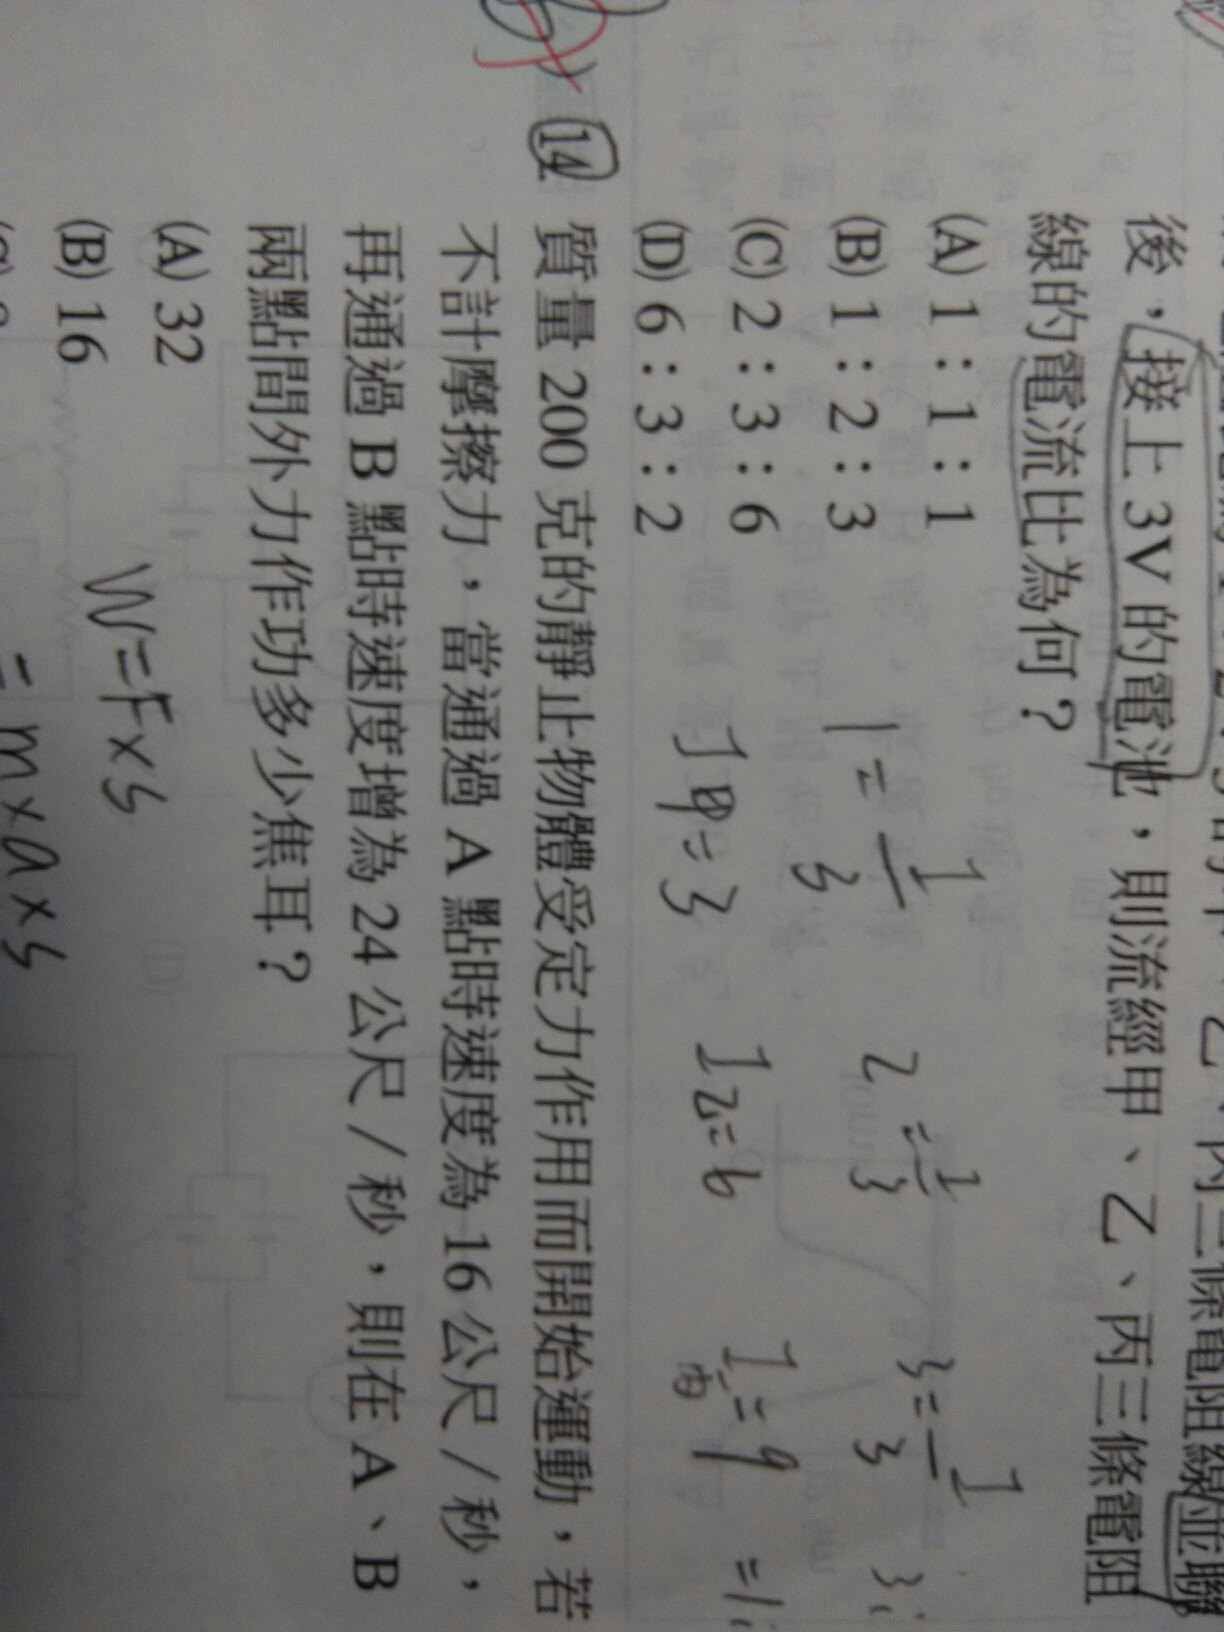 後，接上 3V 的電池，則流經甲、乙、丙三條電阻
線的電流比為何？
(A) 1：1：1
(B) 1：2：3
(C) 2：3：6
(D) 6：3：2
1 = 1/3
2 = 1/3
3 = 1/3
I甲=3
I乙=6
I丙=9
14 質量 200 克的靜止物體受定力作用而開始運動，若
不計摩擦力，當通過 A 點時速度為 16 公尺／秒，
再通過 B 點時速度增為 24 公尺／秒，則在 A、B
兩點間外力作功多少焦耳？
(A) 32
(B) 16
W=F×S
=m×a×S